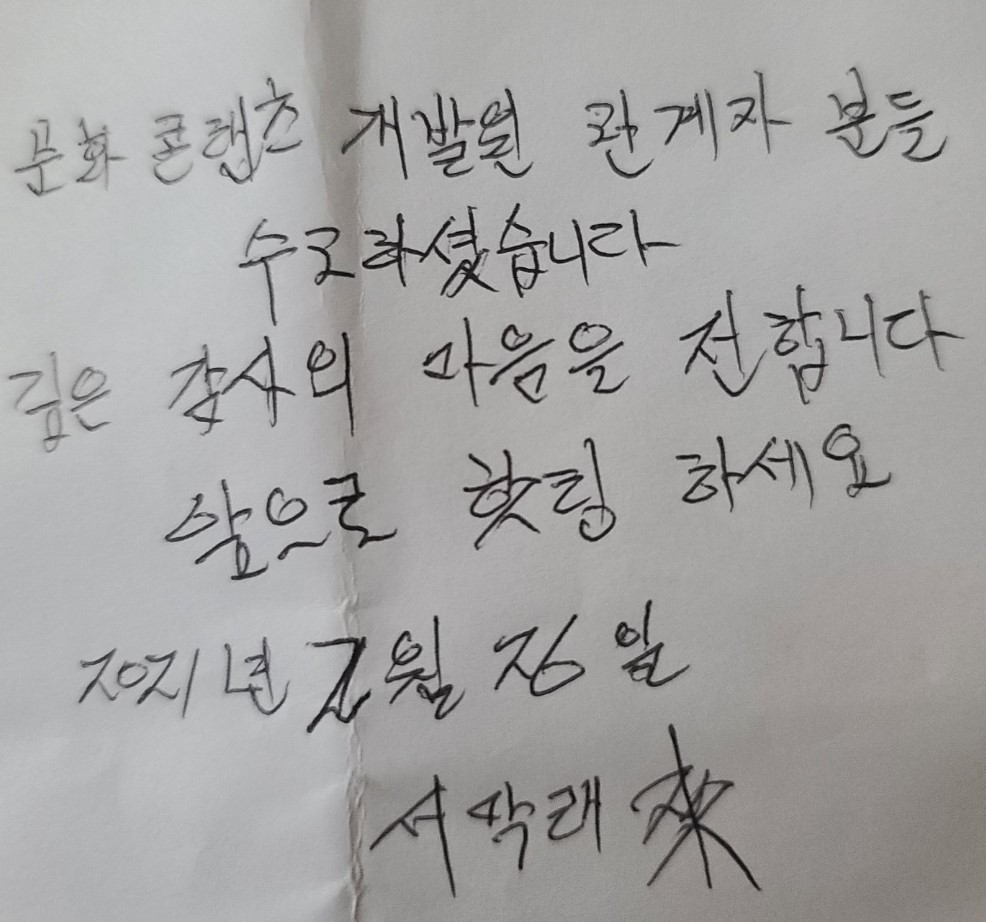 문화 콘랩츠 개발원 관계자 분들
수고하셨습니다
깊은 감사의 마음을 전합니다
앞으로 홧팅 하세요
2021년 2월 26일
서막래 來